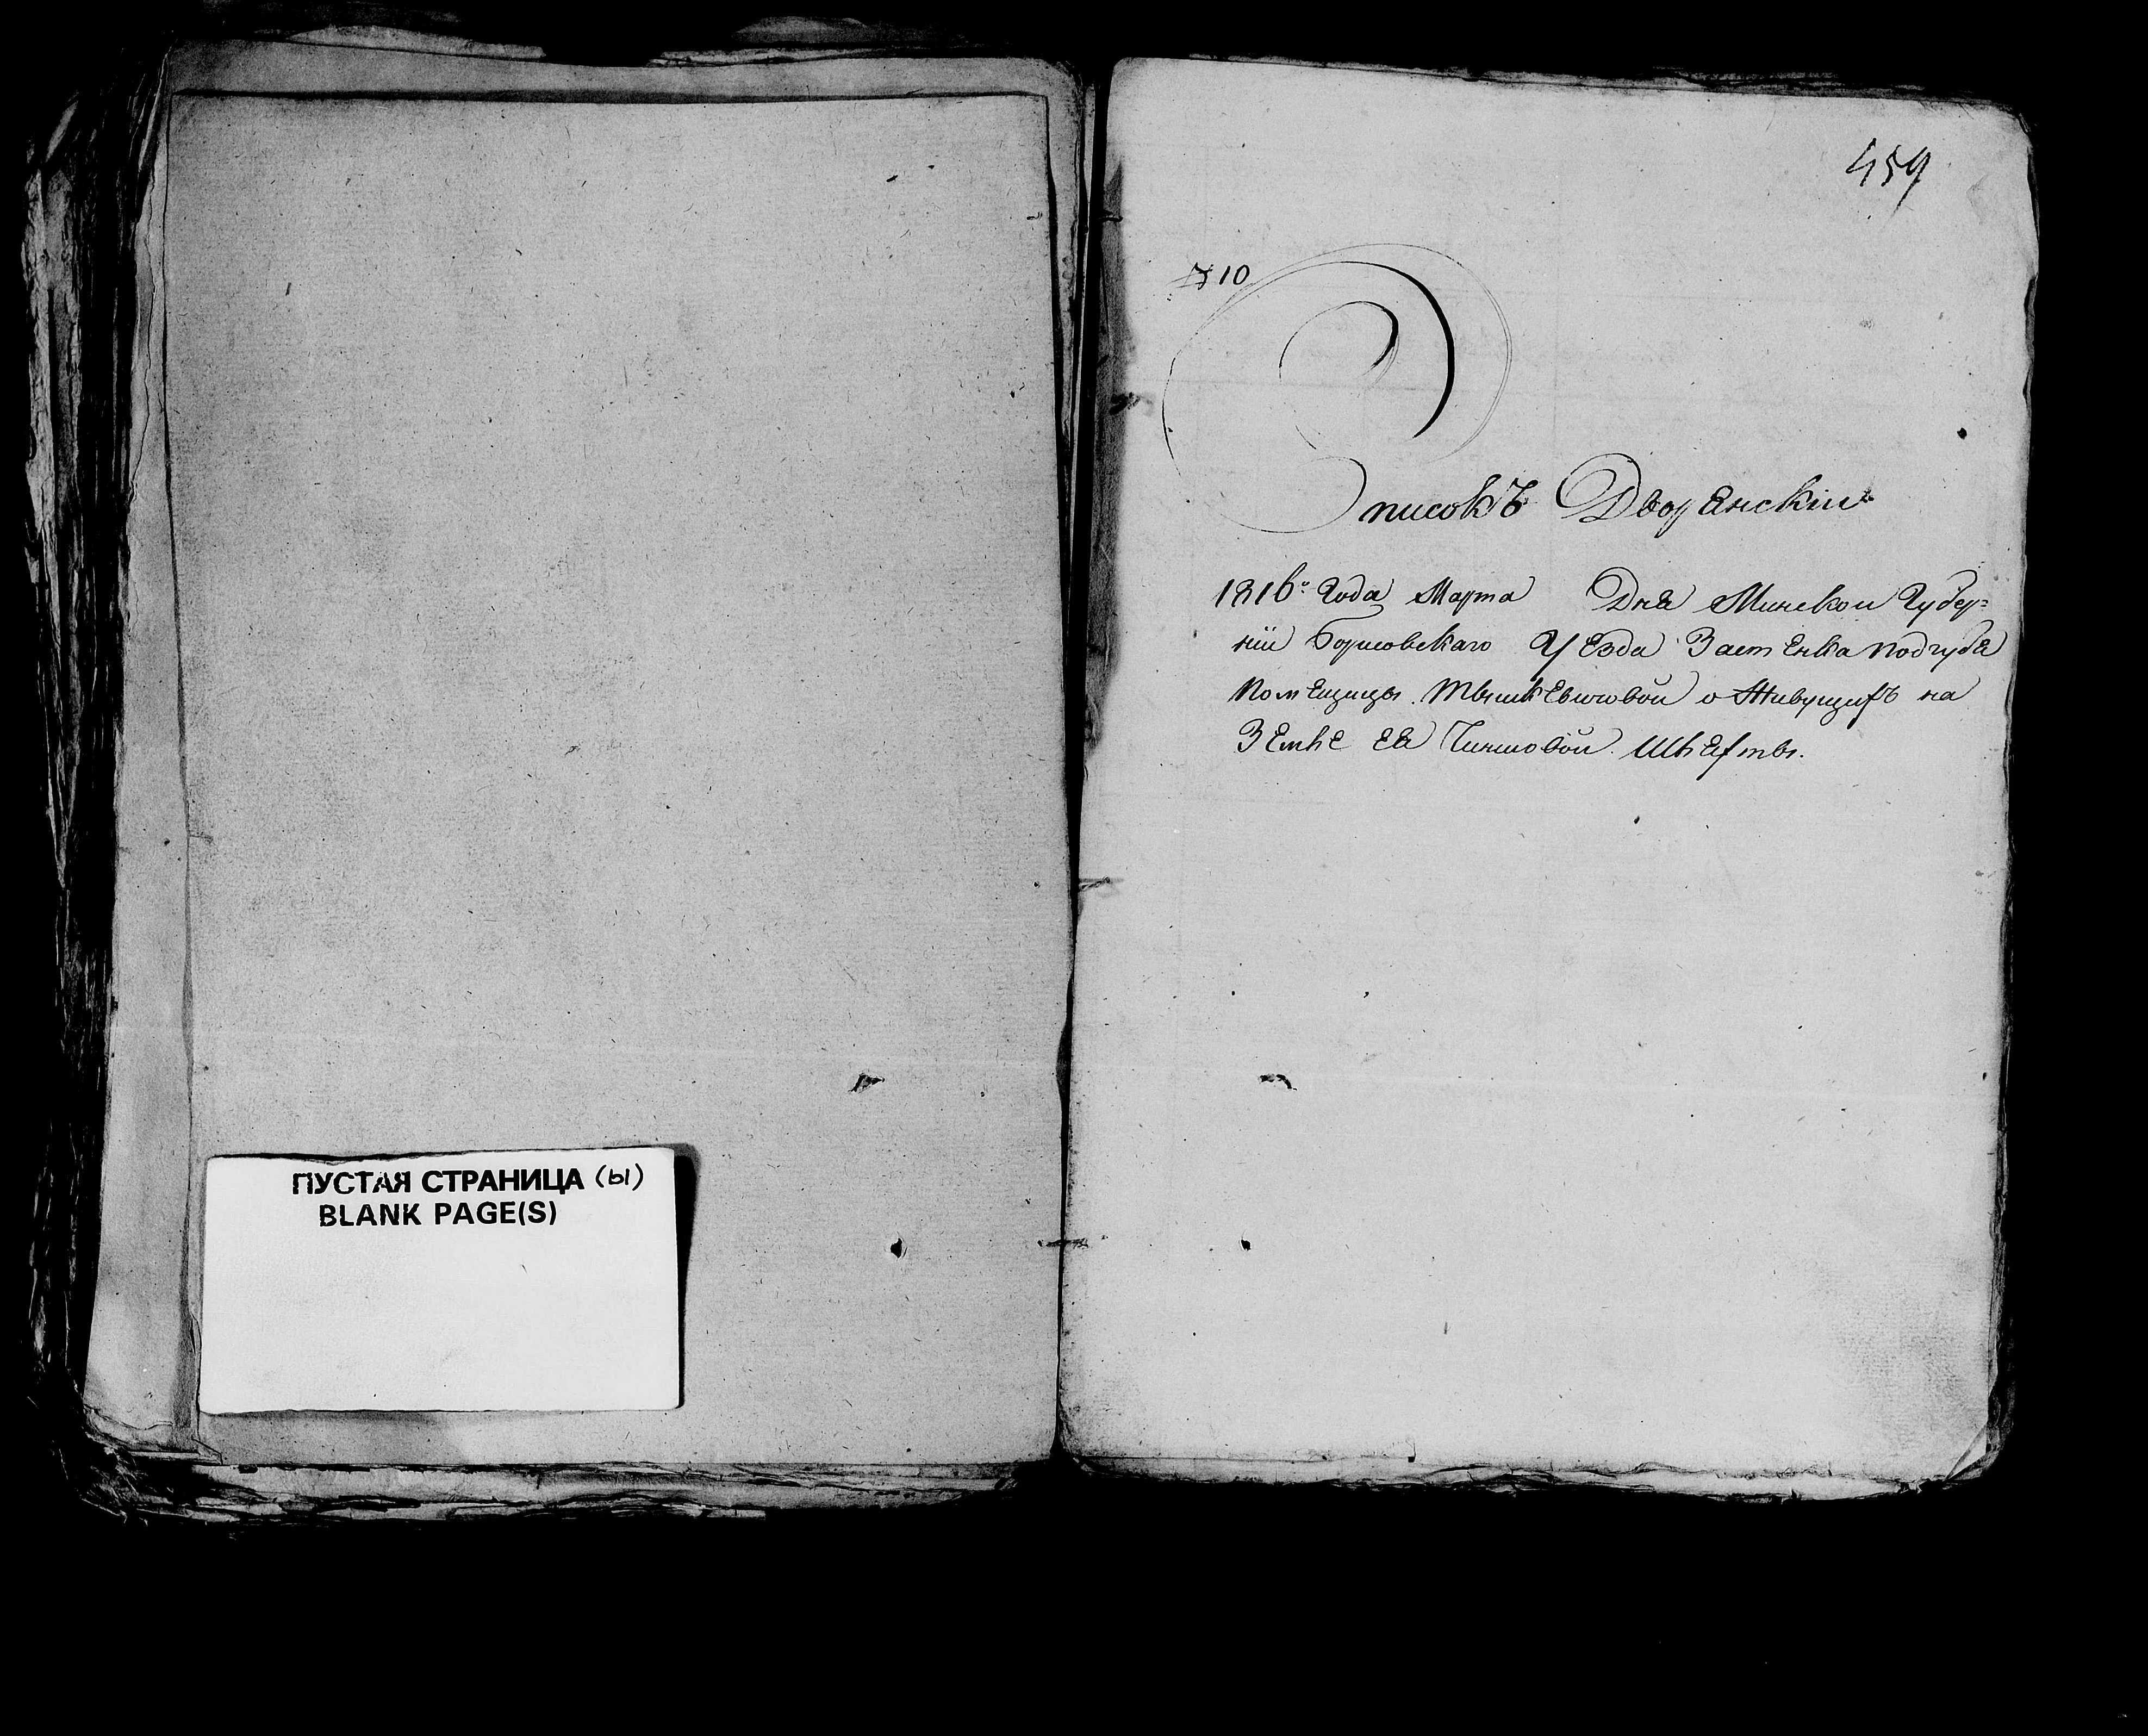 ПУСТАЯ СТРАНИЦА (ы)
BLANK PAGE(S)
459
10
Списокъ Дворянскій
1816го Года Марта Дня Минской Губер=
ніи Борисовскаго Уезда Застенка Подгубя
Помещицы Тышкевичовой о Живущихъ на
Земле ея Чиншовой Шляхты.